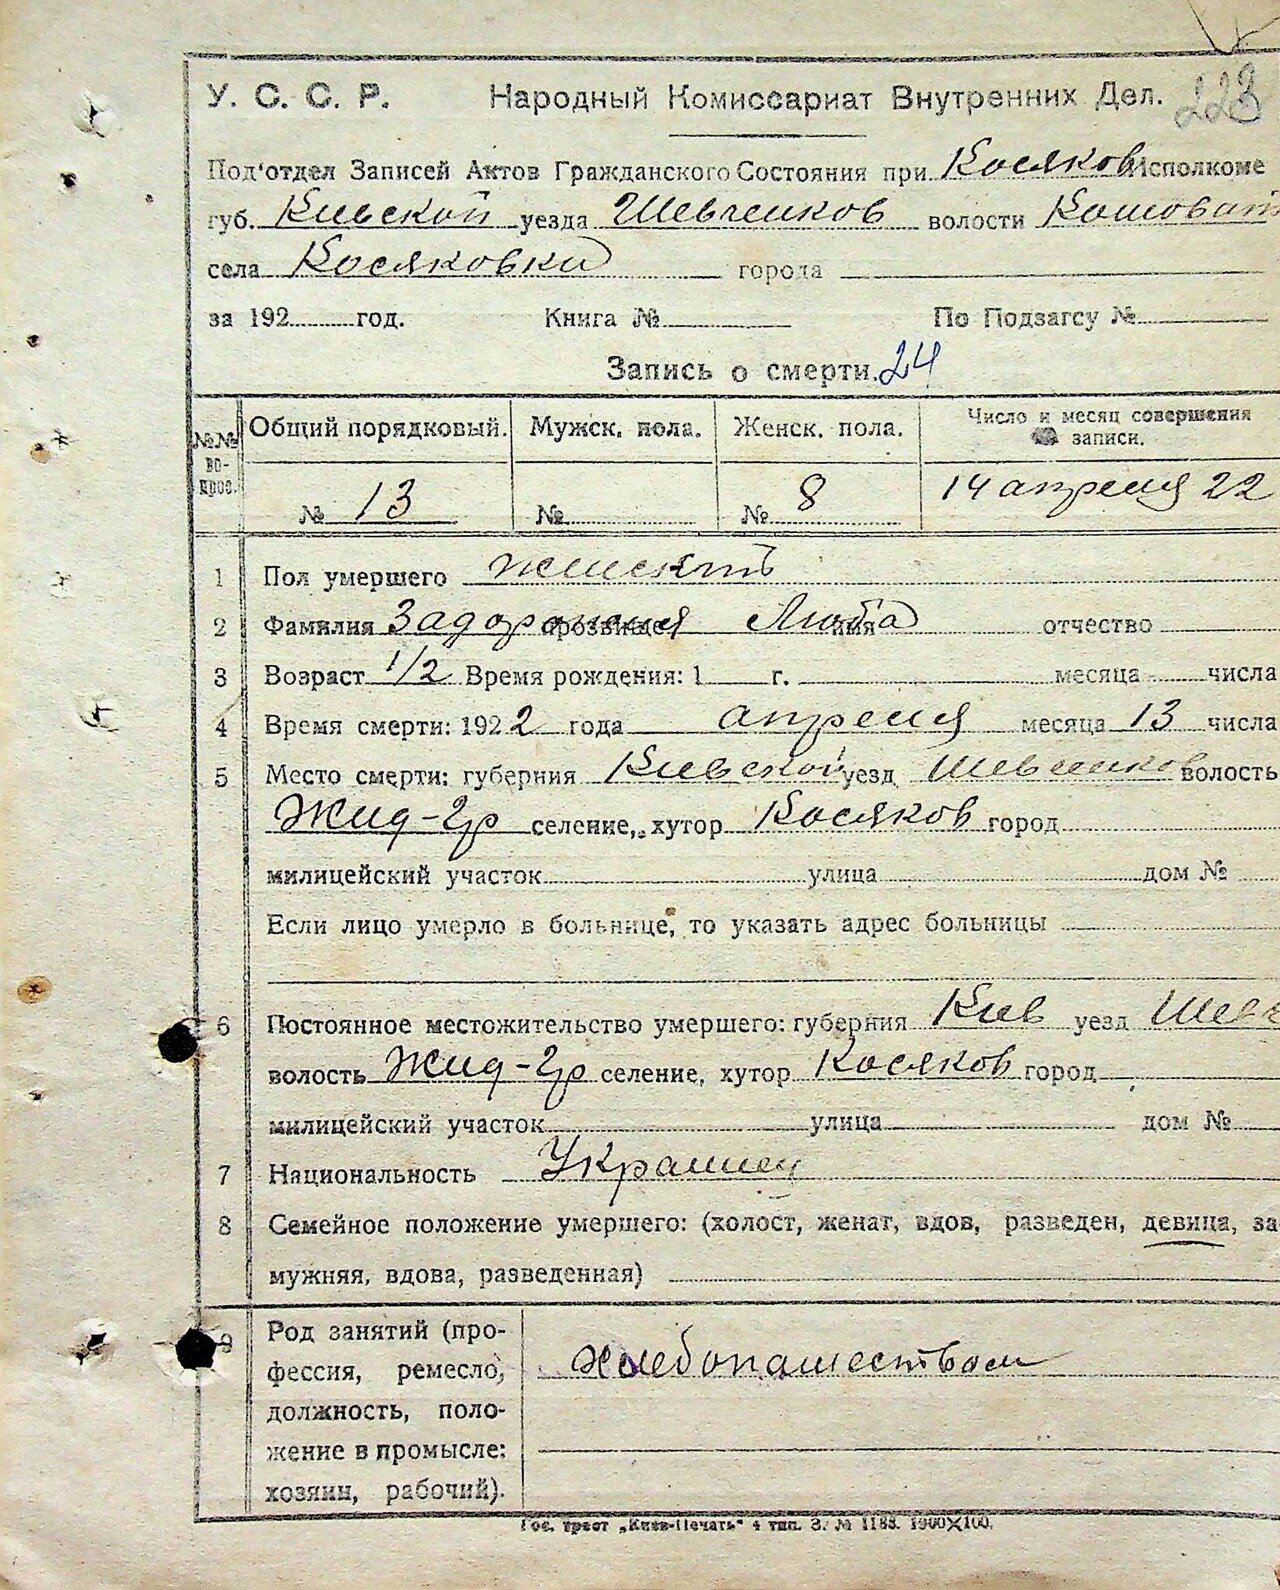 223
У. С. С. Р. Народный Комиссариат Внутренних Дел.
Под'отдел Записей Актов Гражданского Состояния при Косяков Исполкоме
губ. Киевской уезда Шевченков волости Кошоват
села Косяковки города
за 192 год. Книга № По Подзагсу №
Запись о смерти. 24
№№ вопрос. Общий порядковый. Мужск. пола. Женск. пола. Число и месяц совершения записи.
№ 13 № № 8 14 апреля 22
1 Пол умершего женский
2 Фамилия Задорожная прозвище Люба имя отчество
3 Возраст 1/2 Время рождения: 1 г. месяца числа
4 Время смерти: 1922 года апреля месяца 13 числа
5 Место смерти: губерния Киевской уезд Шевченков волость
Жид-Гр селение, хутор Косяков город
милицейский участок улица дом №
Если лицо умерло в больнице, то указать адрес больницы
6 Постоянное местожительство умершего: губерния Киев уезд Шевч
волость Жид-Гр селение, хутор Косяков город
милицейский участок улица дом №
7 Национальность Украинец
8 Семейное положение умершего: (холост, женат, вдов, разведен, девица, за-
мужняя, вдова, разведенная)
9 Род занятий (про-
фессия, ремесло,
должность, поло-
жение в промысле:
хозяин, рабочий).
хлебопашеством
Гос. трест „Киев-Печать" 4 тип. З. № 1183. 1900×100.